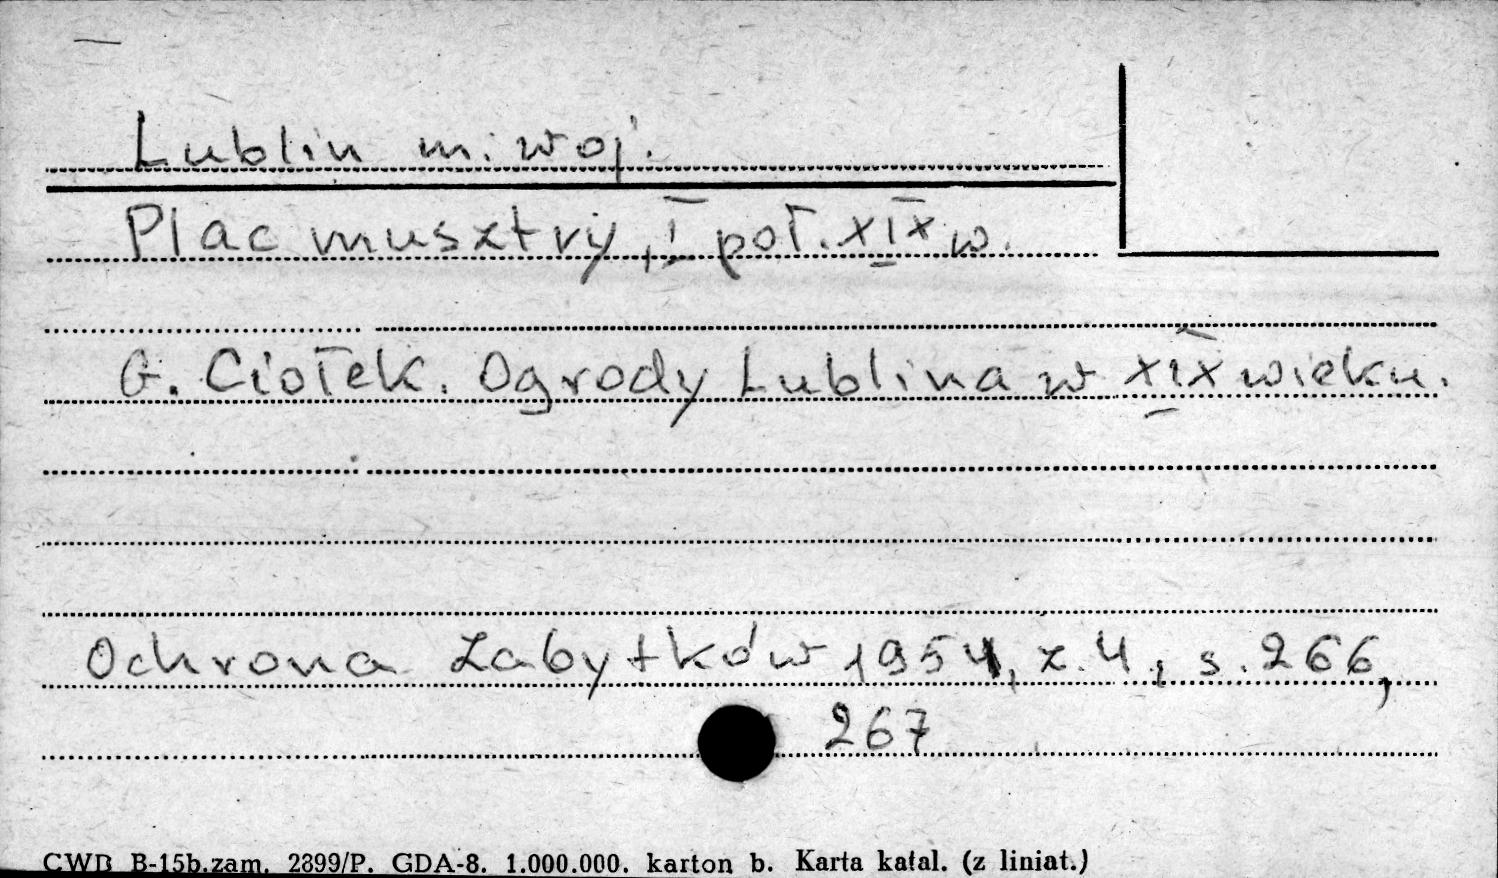 Lublin m. woj.
Plac musztry, I poł. XIX w.
G. Ciołek. Ogrody Lublina w XIX wieku.
Ochrona Zabytków 1954, z. 4, s. 266,
267
CWD B-15b.zam. 2399/P. GDA-8. 1.000.000. karton b. Karta katal. (z liniat.)